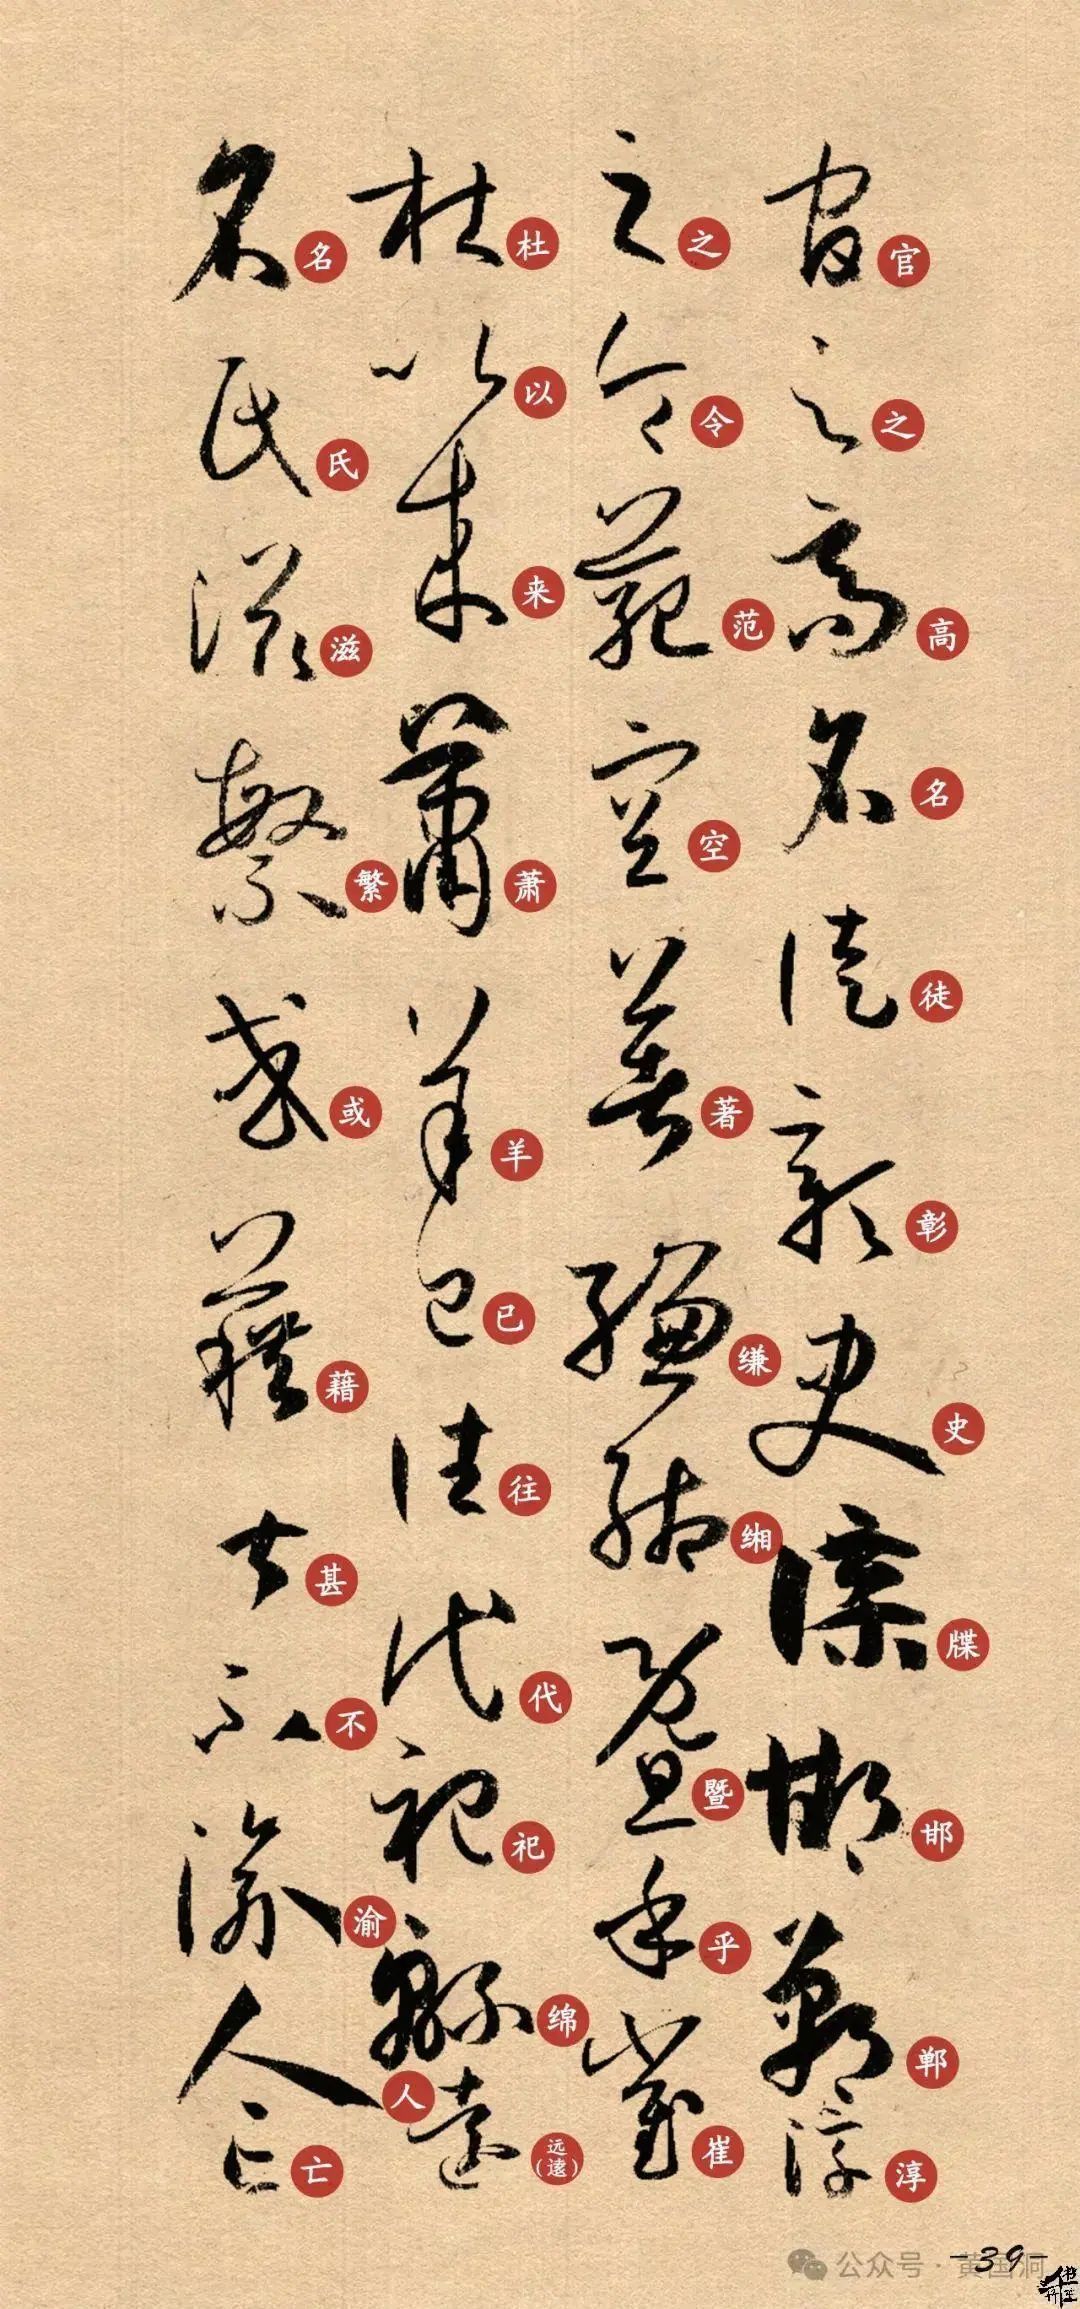 官之高名徒彰史牒邯郸淳
之令范空著缣缃暨乎崔
杜以来萧羊已往代祀绵远(逺)
名氏滋繁或藉甚不渝人亡
-39-
公众号·黄国洞